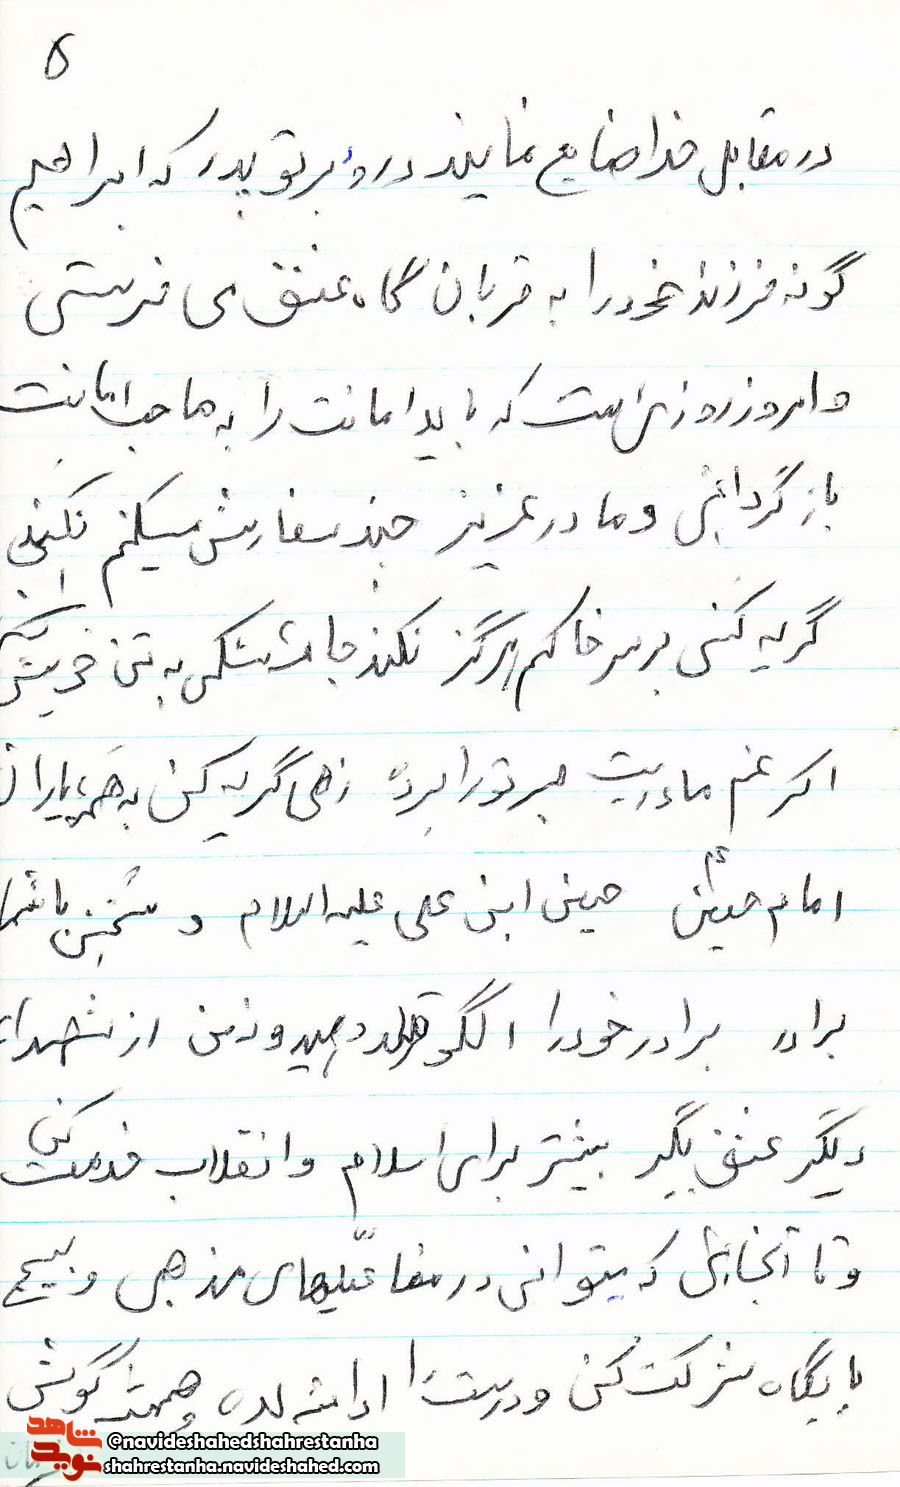 ۵
در مقابل خدا ضایع نمایند درود بر تو پدر که ابراهیم
گونه فرزند خود را به قربان گاه عشق می فرستی
و امروز روزی است که باید امانت را به صاحب امانت
باز گردانی و مادر عزیز چند سفارش میکنم نکند
گریه کنی بر سر خاکم هرگز نکند جامه مشکی به تن خویش
اگر غم مادریت صبر تو را برده زهی گریه کن به همه یاران
امام حسین حسین ابن علی علیه السلام و سخنی با شما
برادر برادر خود را الگو قرار دهید و از من از شهدای
دیگر عشق بگیر بیشتر برای اسلام و انقلاب خدمت کن
و تا آنجایی که میتوانی در فعالیتهای مذهبی و بسیج
پایگاه شرکت کن و درست را ادامه بده و همیشه گوش
@navideshahedshahrestanha
shahrestanha.navideshahed.com
شاهد
نوید